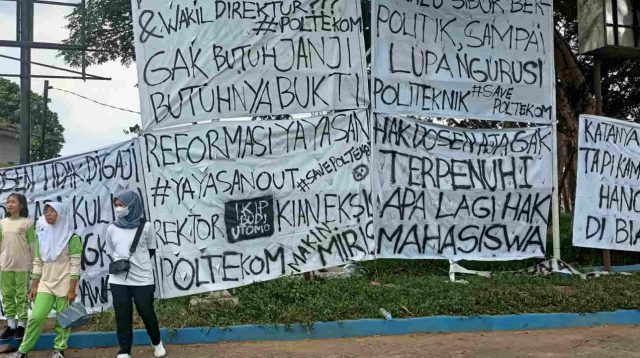 & WAKIL DIREKTUR???
#POLTEKOM
GAK BUTUH JANJI
BUTUHNYA BUKTI
SIBUK BER
POLITIK, SAMPAI
LUPA NGURUSI
POLITEKNIK #SAVE
POLTEKOM
REFORMASI YAYASAN
#YAYASANOUT #SAVEPOLTEKOM
REKTOR IKIP BUDI UTOMO KIAN EKSIS
POLTEKOM MAKIN MIRIS
HAK DOSEN AJA GAK
TERPENUHI
APA LAGI HAK
MAHASISWA
TIDAK DIGAJI
KULI
KATANYA
TAPI KAMI
HANC
DI BIA